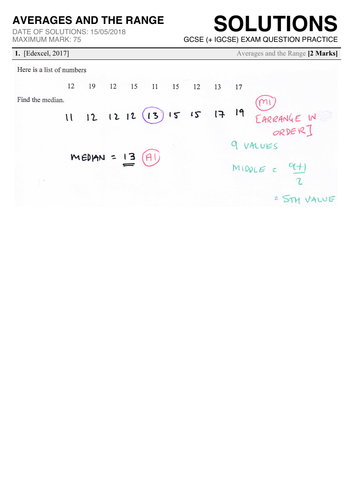 AVERAGES AND THE RANGE
SOLUTIONS
DATE OF SOLUTIONS: 15/05/2018
MAXIMUM MARK: 75
GCSE (+ IGCSE) EXAM QUESTION PRACTICE
1. [Edexcel, 2017]
Averages and the Range [2 Marks]
Here is a list of numbers
12 19 12 15 11 15 12 13 17
Find the median.
11 12 12 12 13 15 15 17 19
M1
[ARRANGE IN
ORDER]
9 VALUES
MEDIAN = 13 A1
MIDDLE = 9+1
2
= 5TH VALUE